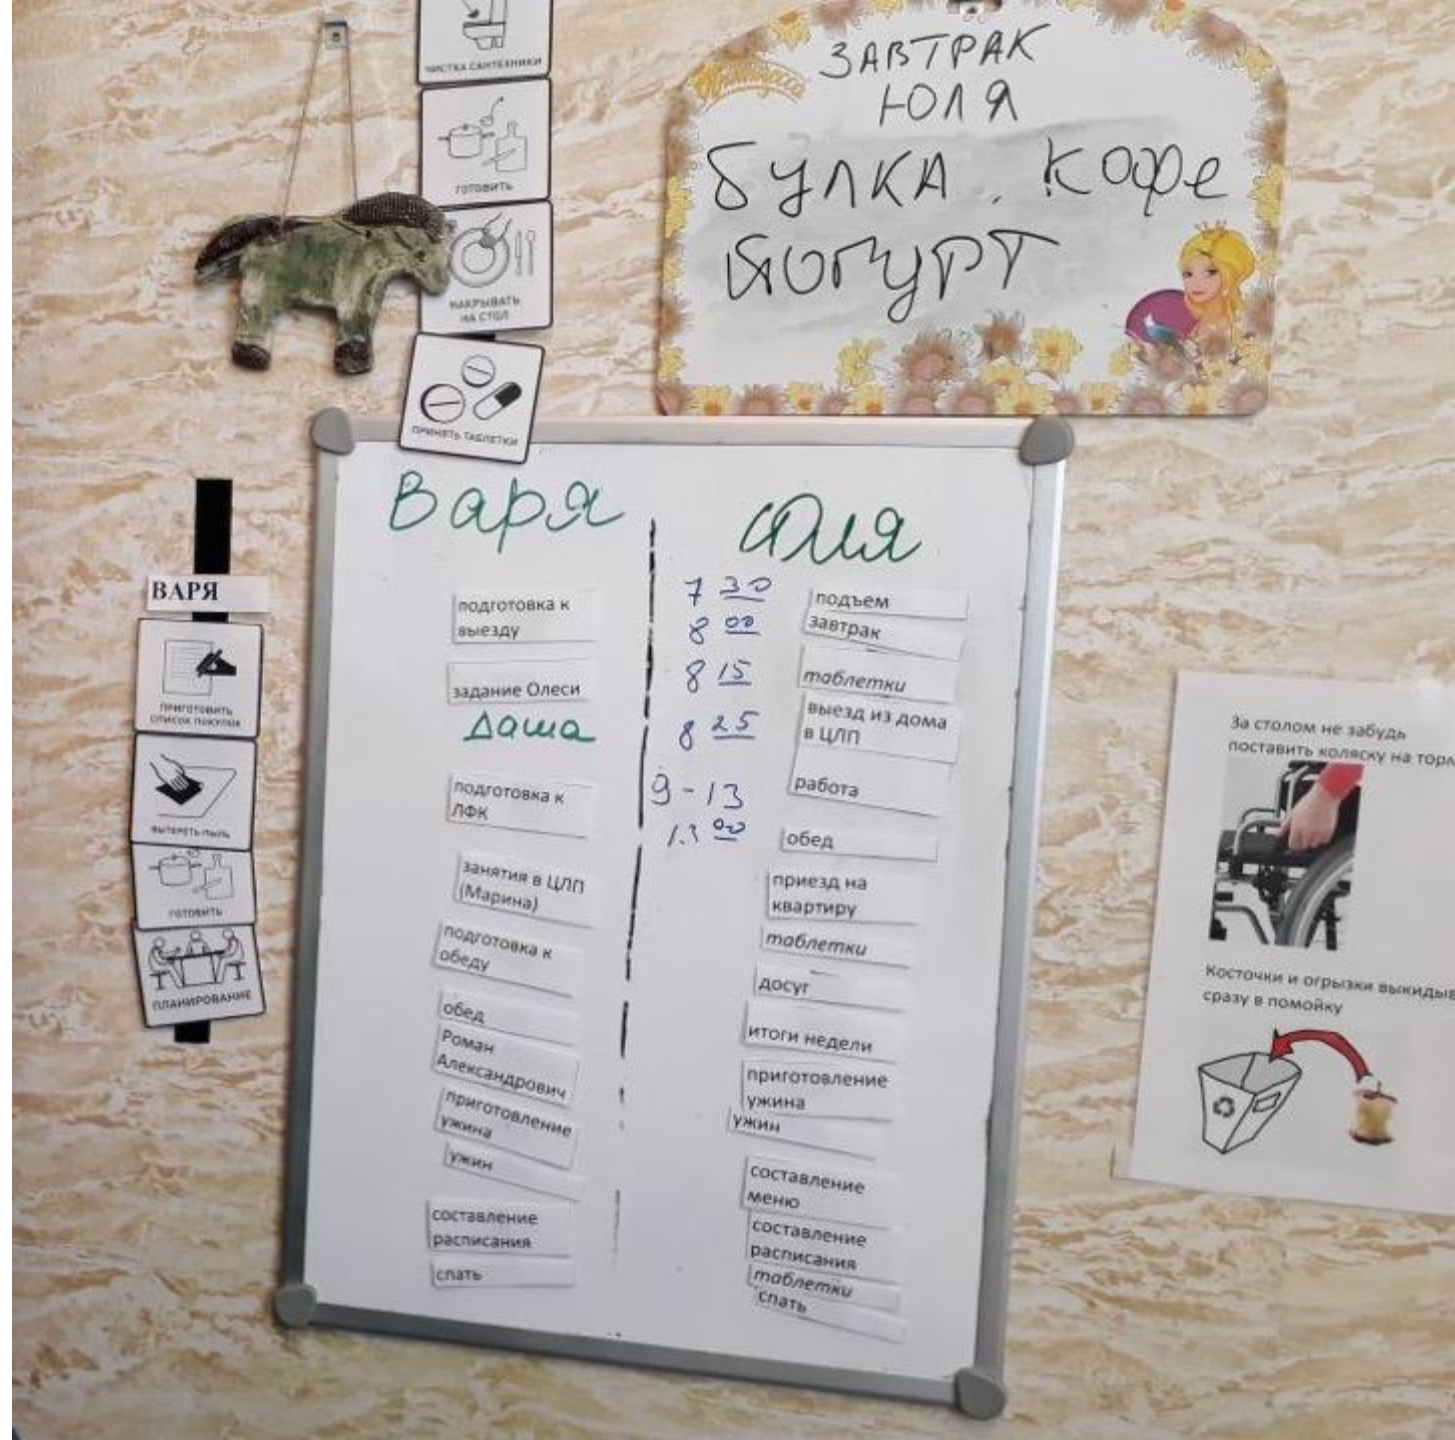 ЧИСТКА САНТЕХНИКИ
ГОТОВИТЬ
НАКРЫВАТЬ
НА СТОЛ
ПРИНЯТЬ ТАБЛЕТКИ
ЗАВТРАК
ЮЛЯ
БУЛКА. Кофе
Йогурт
ВАРЯ
ПРИГОТОВИТЬ
СПИСОК ПОКУПОК
ВЫТЕРЕТЬ ПЫЛЬ
ГОТОВИТЬ
ПЛАНИРОВАНИЕ
Варя
подготовка к
выезду
задание Олеси
Даша
подготовка к
ЛФК
занятия в ЦЛП
(Марина)
подготовка к
обеду
обед
Роман
Александрович
приготовление
ужина
ужин
составление
расписания
спать
Юля
7 30 подъем
8 00 завтрак
8 15 таблетки
8 25 выезд из дома
в ЦЛП
9-13 работа
13 00 обед
приезд на
квартиру
таблетки
досуг
итоги недели
приготовление
ужина
ужин
составление
меню
составление
расписания
таблетки
спать
За столом не забудь
поставить коляску на торм
Косточки и огрызки выкидыв
сразу в помойку